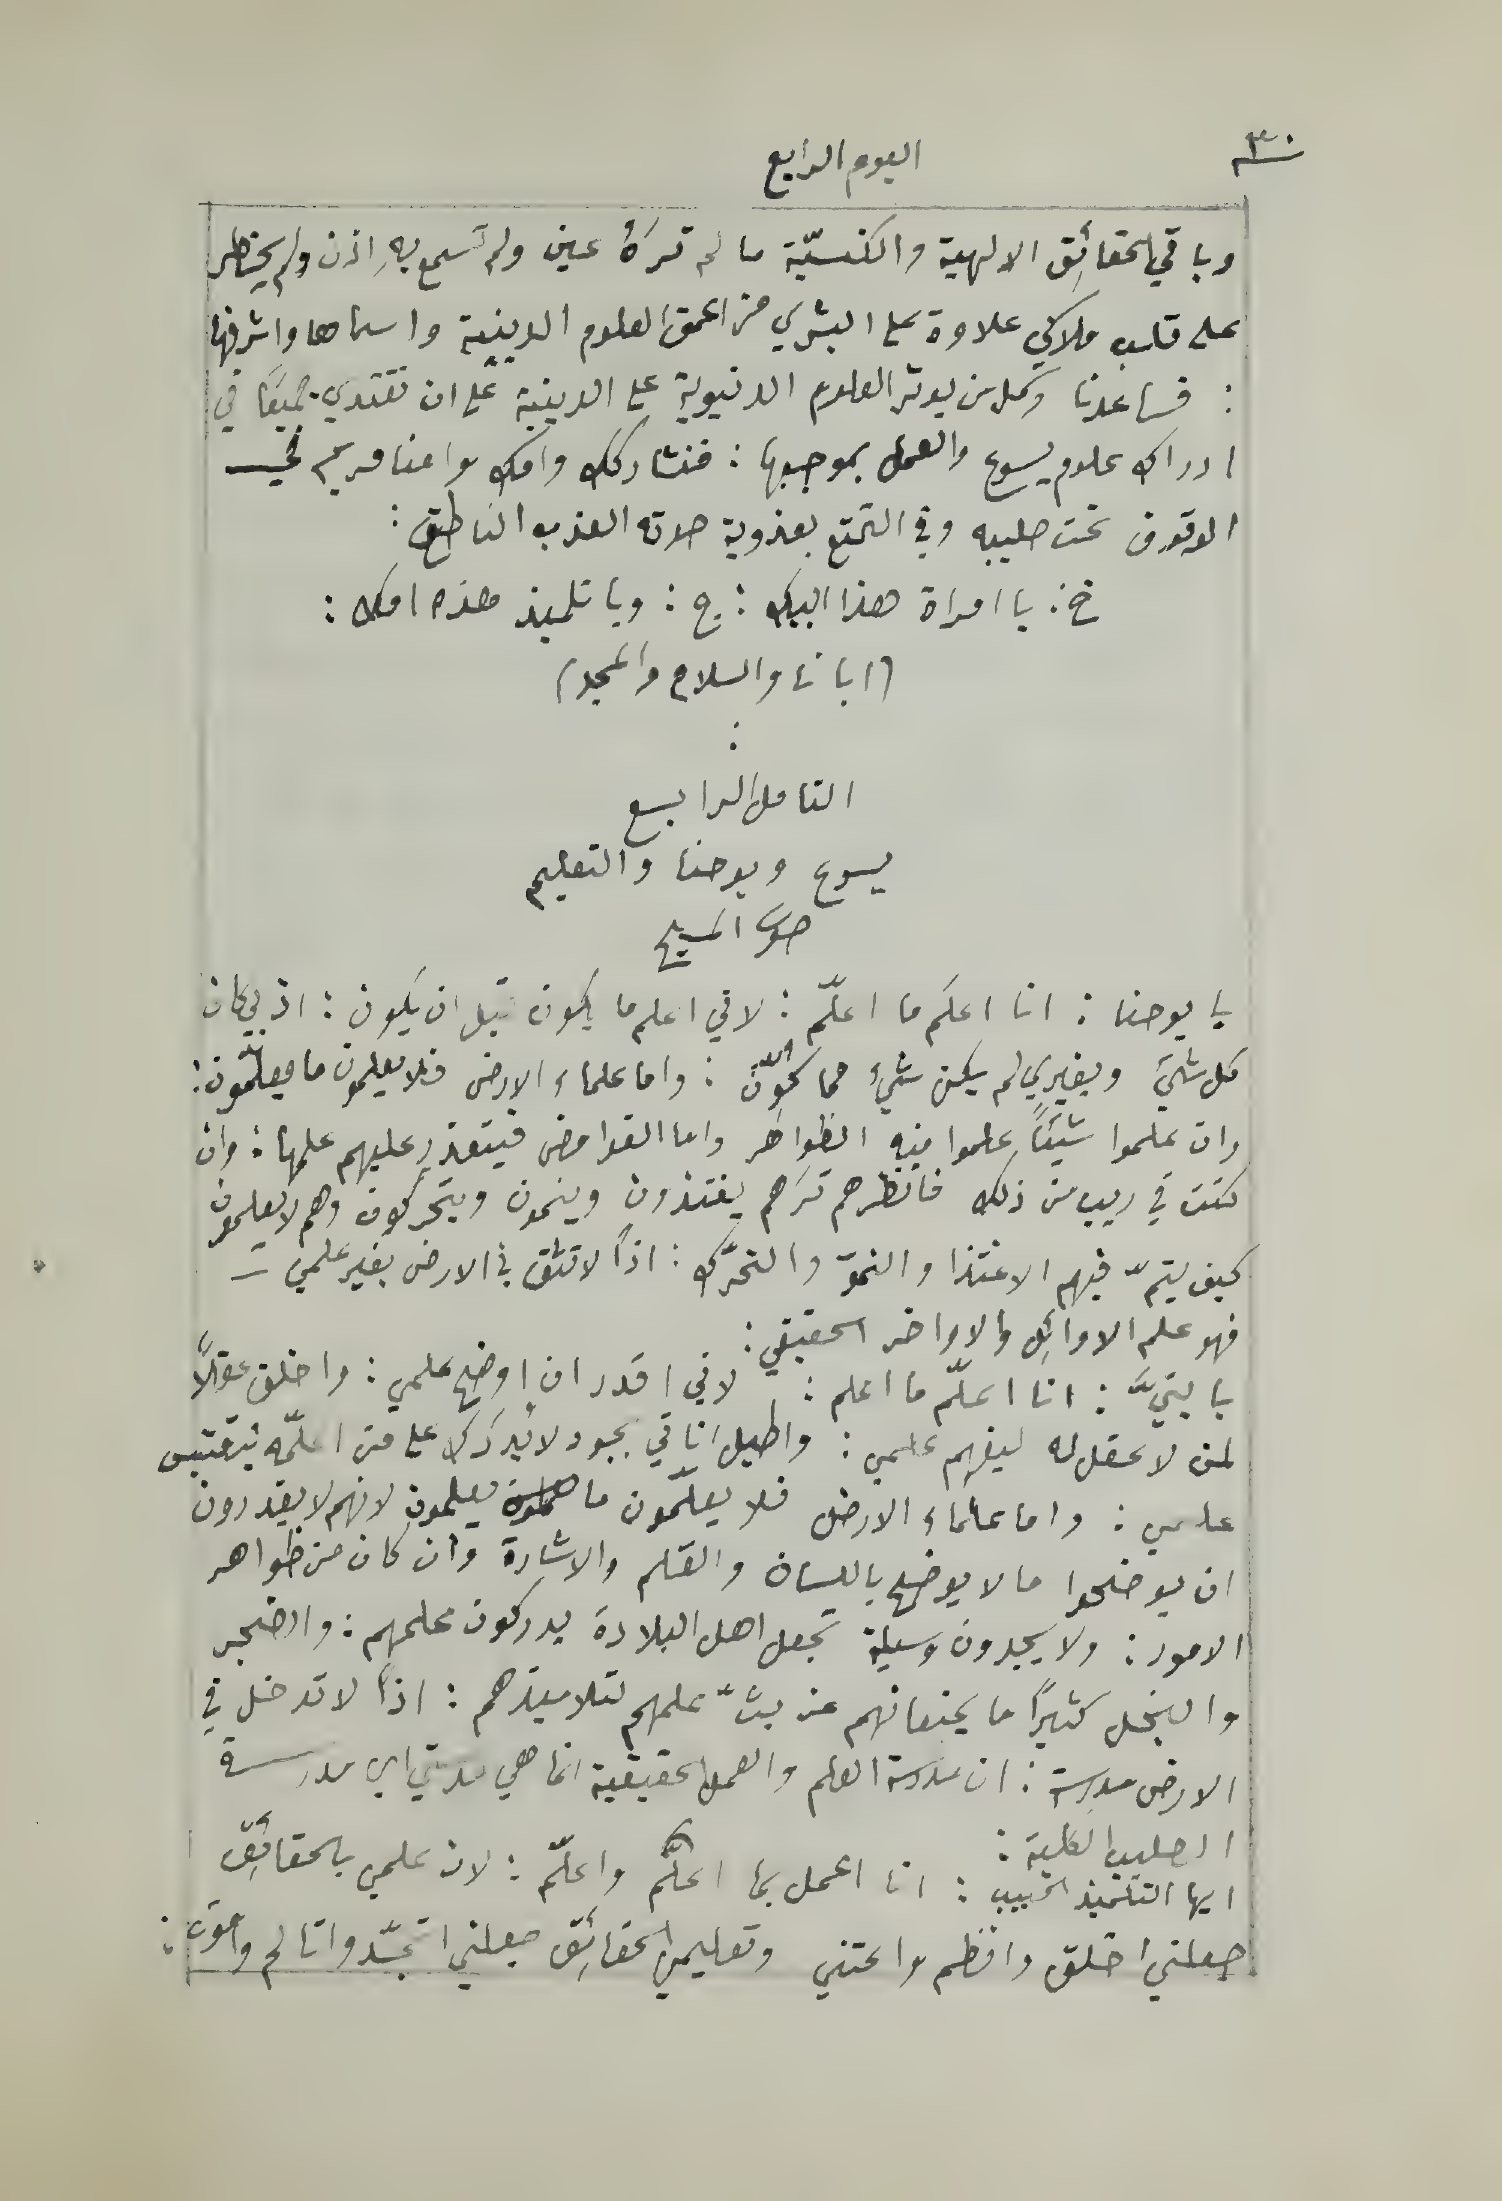 ٣٠
اليوم الرابع
وباقي الحقائق الالهية والكنسيّة ما لم ترَهُ عين ولم تسمع بهِ اذن ولم يخطر
على قلب ملاكي علاوة على البشري من اعمق العلوم الدينية واسماها واشرفها
: فساعدنا وكل من يوثر العلوم الدنيوية على الدينية على ان نقتدي جميعًا في
ادراك علوم يسوع والعمل بموجبها : فنشاركك وامك وامنا مريم في
الوقوف تحت صليبه وفي التمتع بعذوبة صوته العذب الناطق :
خ : يا امراة هذا ابنك : ج : ويا تلميذ هذه امك :
(ابانا والسلام والمجد)
:
التامل الرابع
يسوع ويوحنا والتعليم
صوت المسيح
يا يوحنا : انا اعلَم ما اعلّم : لاني اعلم ما يكون قبل ان يكون : اذ بي كان
كل شيء وبغيري لم يكن شيء مما كُوّن : واما علماء الارض فلا يعلمون ما يعلّمون :
وان علموا شيئًا علموا منه الظواهر واما الغوامض فيتعذر عليهم علمها : وان
كنت في ريب من ذلك فانظرهم ترَهم يغتذون وينمون ويتحركون وهم لا يعلمون
كيف يتمّ فيهم الاغتذا والنموّ والتحرّك : اذًا لا تثق في الارض بغير علمي –
فهو علم الاوائل والاواخر الحقيقي :
يا بنيَّ : انا اعلّم ما اعلم : لاني اقدر ان اوضح علمي : واخلق عقلًا
لمن لا عقل له ليفهم علمي : واطيل اناتي بجود لا يُدرَك على من اعلّمه ليقتبس
علمي : واما علماء الارض فلا يعلّمون ما يعلمون لانهم لا يقدرون
ان يوضحوا ما لا يوضح باللسان والقلم والاشارة وان كان من ظواهر
الامور : ولا يجدون وسيلة تجعل اهل البلادة يدركون علمهم : والضجر
والبخل كثيرًا ما يمنعانهم عن بثّ علمهم لتلاميذهم : اذًا لا تدخل في
الارض مدرسة : ان مدرسة العلم والعمل الحقيقية انما هي مدرستي اي مدرسة
الصليب الكلية :
ايها التلميذ الحبيب : انا اعمل بما اعلَم واعلّم : لان علمي بالحقائق
جعلني اخلق وانظم واعتني وتعليمي الحقائق جعلني اتجسّد واتالم واموت :